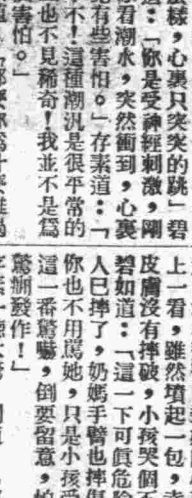 麼樣，心裏只突突的跳」碧
道：「你是受神經刺激，剛
來看潮水，突然衝到，心裏
有些害怕。」存素道：「
不！這種潮汎是很平常的
也不見稀奇！我並不是爲
害怕。」
上一看，雖然墳起一包，
皮膚沒有摔破，小孩哭個
碧如道：「這一下可眞危
人已摔了，奶媽手臂也摔
你也不用罵她，只是小孩受
這一番驚嚇，倒要留意，怕
驚癇發作！」